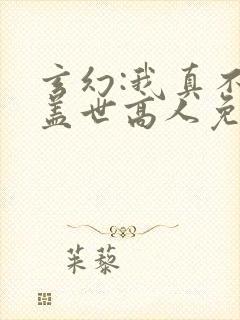 玄幻:我真不
盖世高人免
茱藜